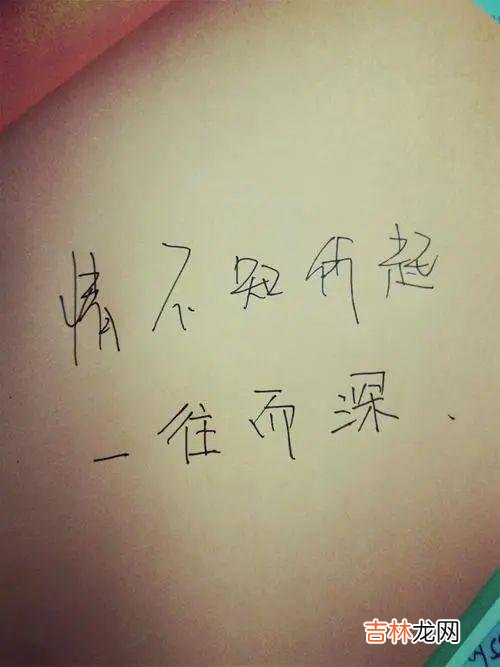 情不知所起
一往而深、
吉林龙网